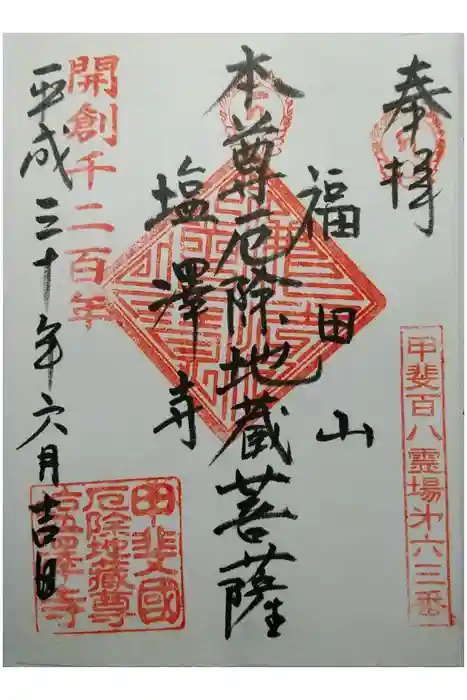 奉拝
甲斐百八霊場第六三番
福田山
本尊厄除地蔵菩薩
塩澤寺
開創千二百年
平成三十年六月吉日
甲斐國
厄除地蔵尊
塩澤寺